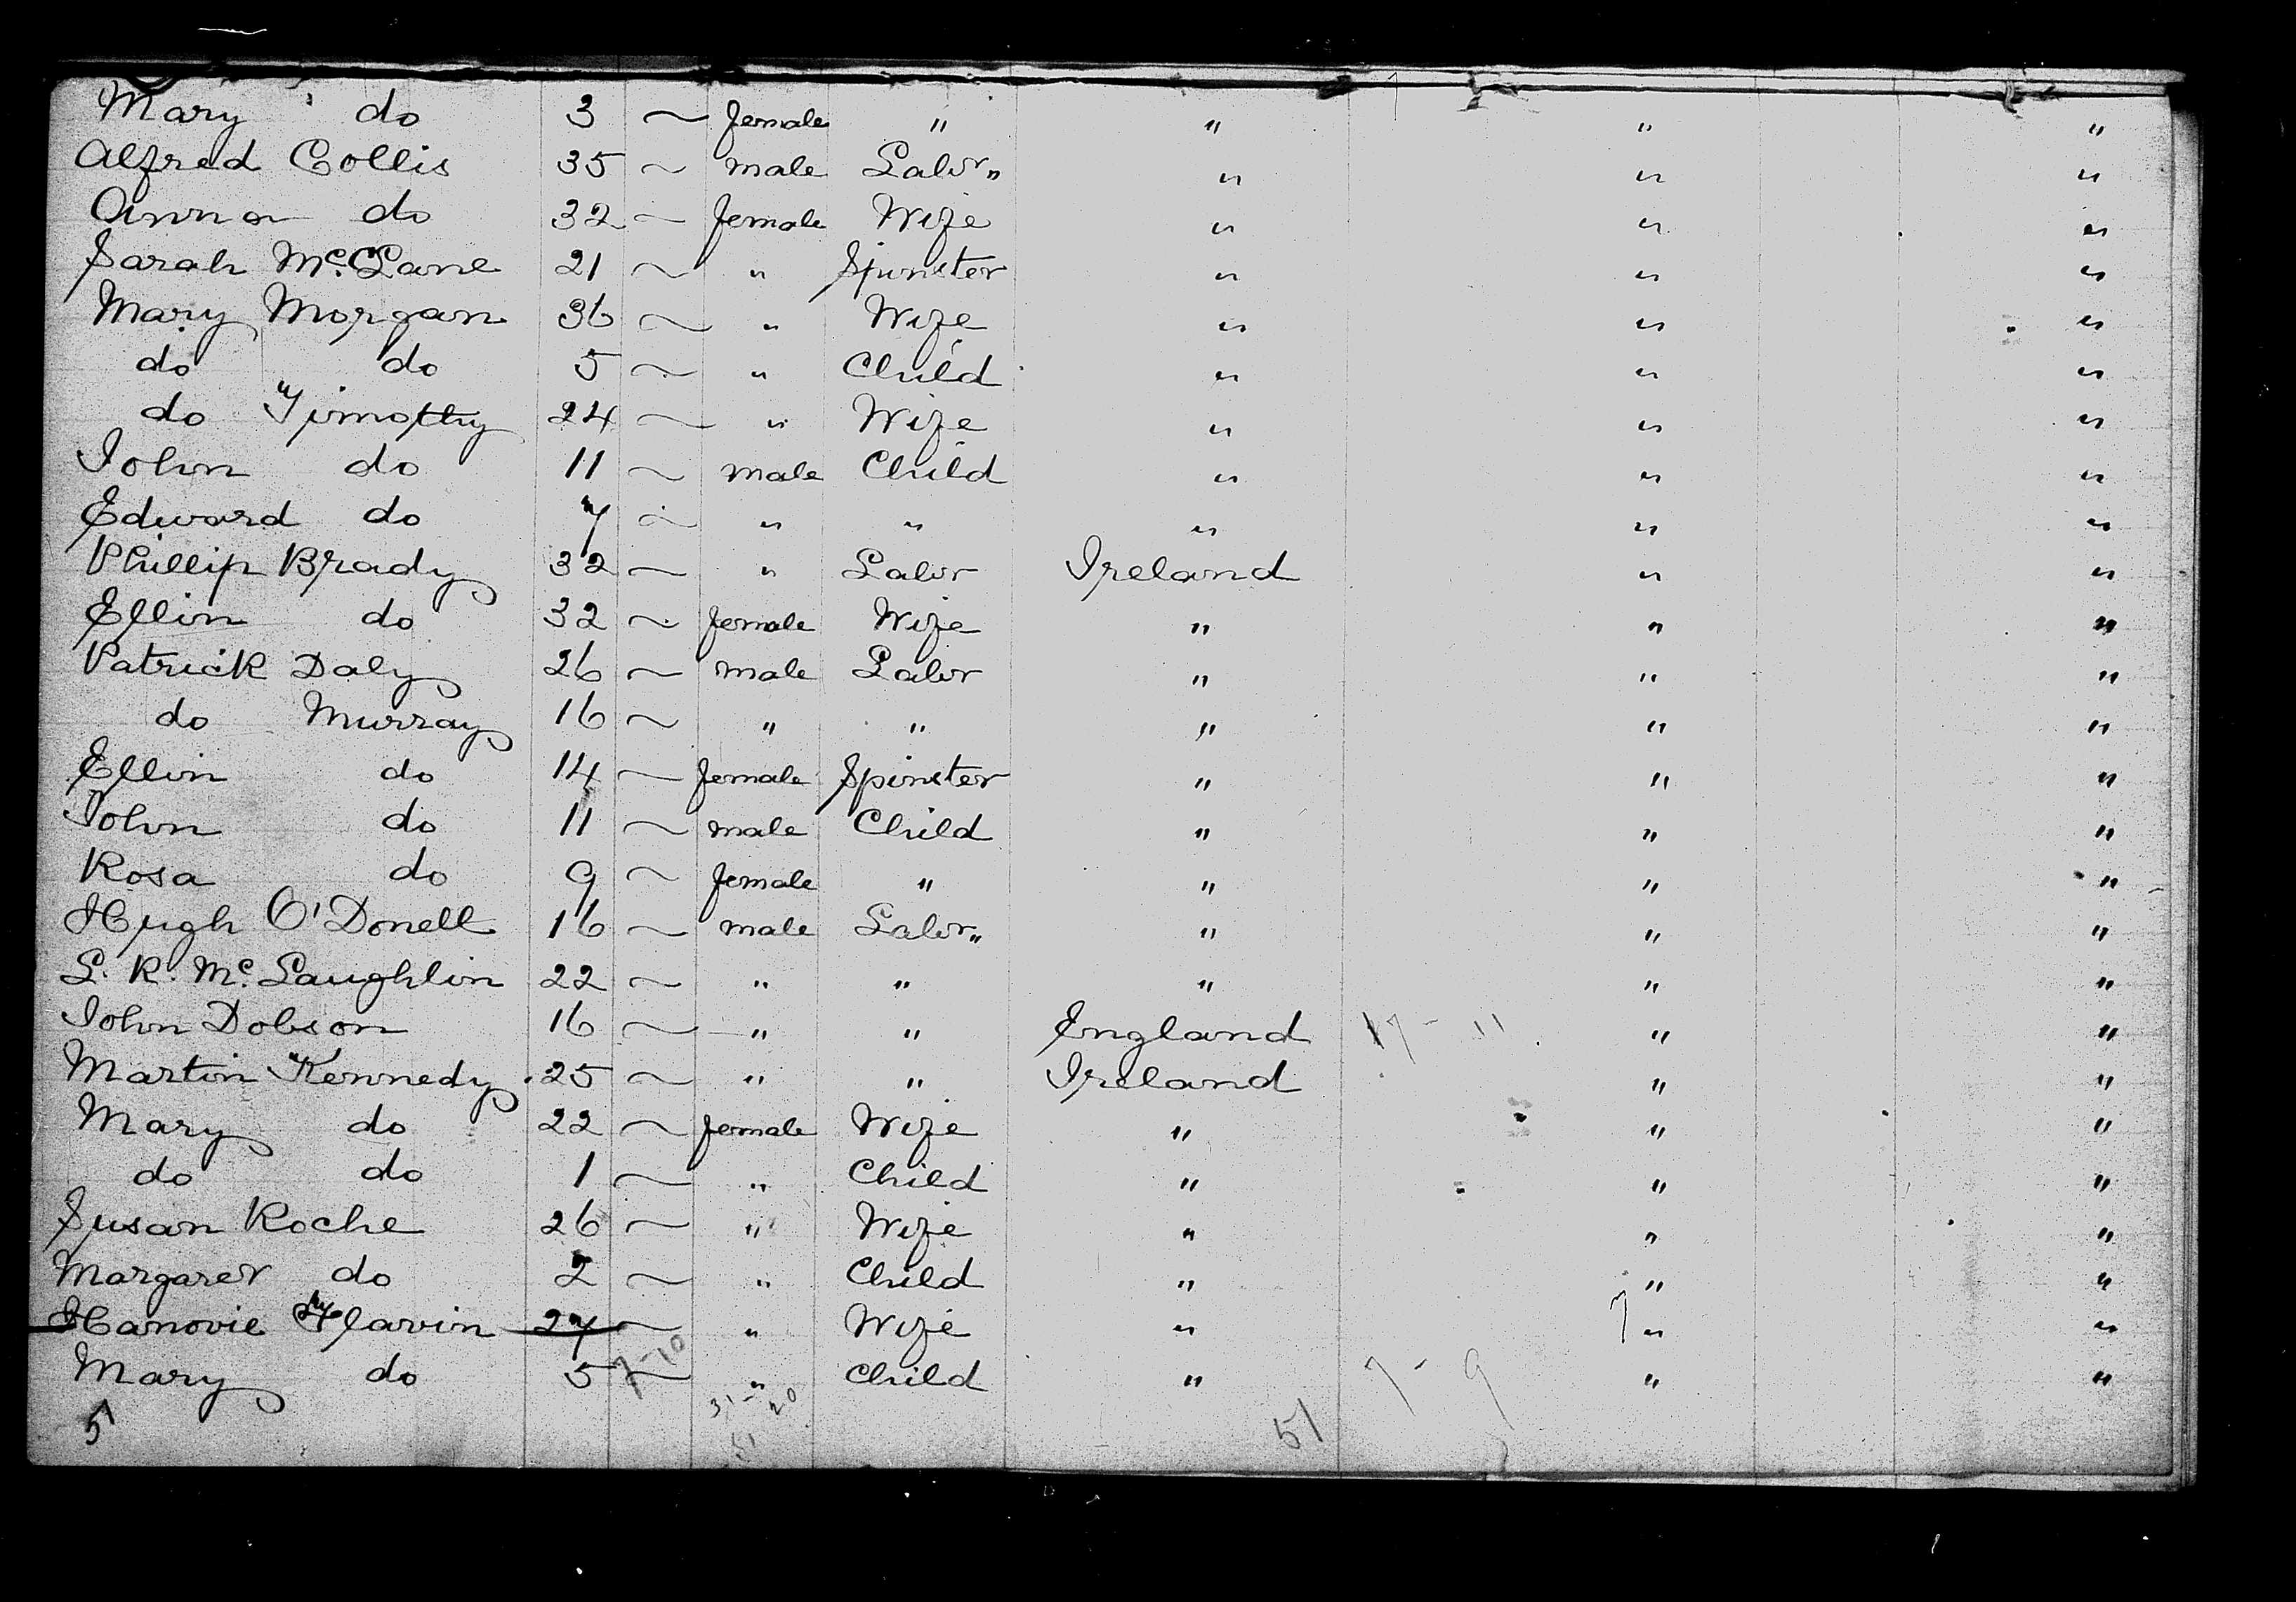 Mary do 3 ~ female " " " "
Alfred Collis 35 ~ male Labor " " " "
Anna do 32 ~ female Wife " " "
Sarah McLane 21 ~ " Spinster " " "
Mary Morgan 36 ~ " Wife " " "
do do 5 ~ " Child " " "
do Timothy 24 ~ " Wife " " "
John do 11 ~ male Child " " "
Edward do 7 ~ " " " " "
Phillip Brady 32 ~ " Labor Ireland " "
Ellin do 32 ~ female Wife " " "
Patrick Daly 26 ~ male Labor " " "
do Murray 16 ~ " " " " "
Ellin do 14 ~ female Spinster " " "
John do 11 ~ male Child " " "
Rosa do 9 ~ female " " " "
Hugh O'Donell 16 ~ male Labor " " " "
L. R. Mc. Laughlin 22 ~ " " " " "
John Dobson 16 ~ " " England 17 - 11 " "
Martin Kennedy 25 ~ " " Ireland " "
Mary do 22 ~ female Wife " " "
do do 1 ~ " Child " " "
Susan Roche 26 ~ " Wife " " "
Margaret do 2 ~ " Child " " "
Hanovie Flavin 27 ~ " Wife " " "
Mary do 5 ~ 7-10 " Child " 7 - 9 " "
51 31-20 51 51